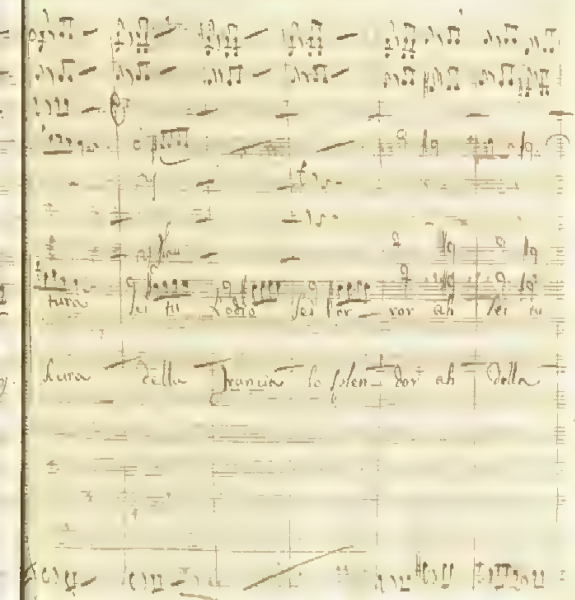 tura sei tu l'odio sei l'or ror ah sei tu
della Francia lo splen dor ah della